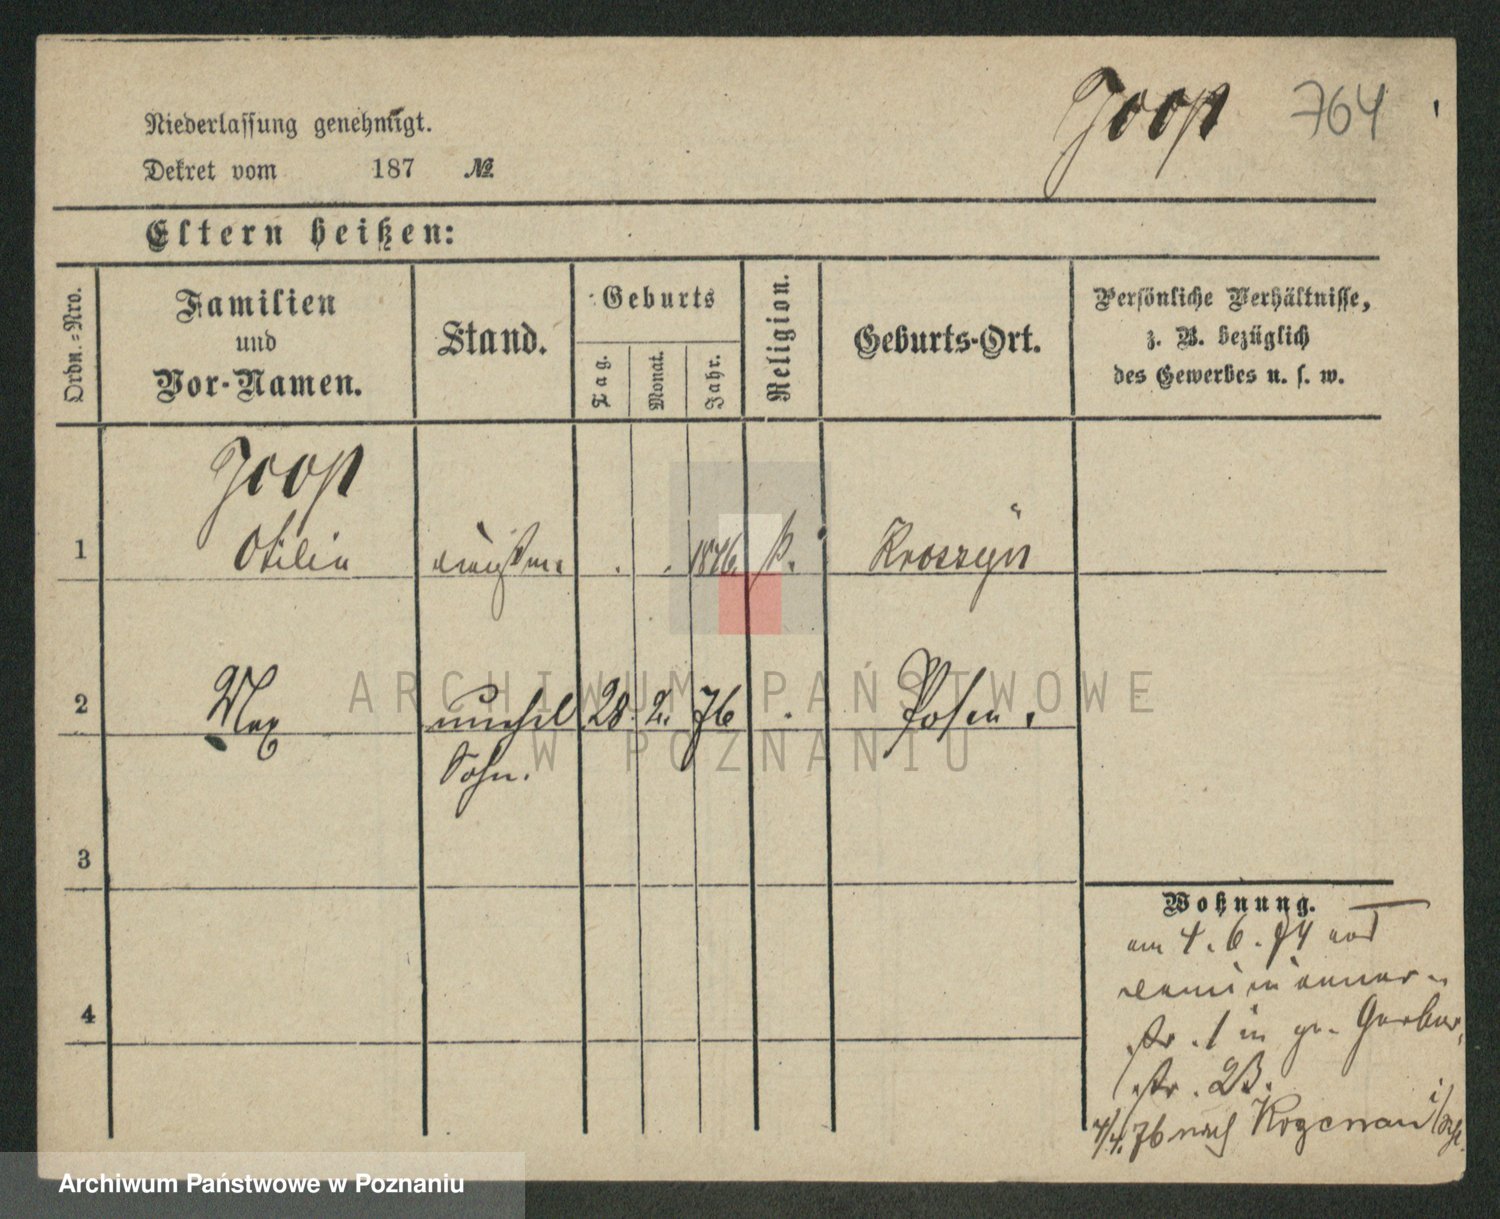 Joop 764
Niederlassung genehmigt.
Dekret vom 187 №
Eltern heißen:
Ordn.=Nro.
Familien
und
Vor-Namen.
Stand.
Geburts
Tag.
Monat.
Jahr.
Religion.
Geburts-Ort.
Persönliche Verhältnisse,
z. B. bezüglich
des Gewerbes u. s. w.
Joop
1 Otilia . . 1846. k.
2 Max unehel 28. 2. 76 . Posen.
Sohn.
3
4
Wohnung.
am 4. 6. 74 von
str. 1 in gr. Gerber
str. 23.
7/4. 76 nach
ARCHIWUM PAŃSTWOWE
W POZNANIU
Archiwum Państwowe w Poznaniu